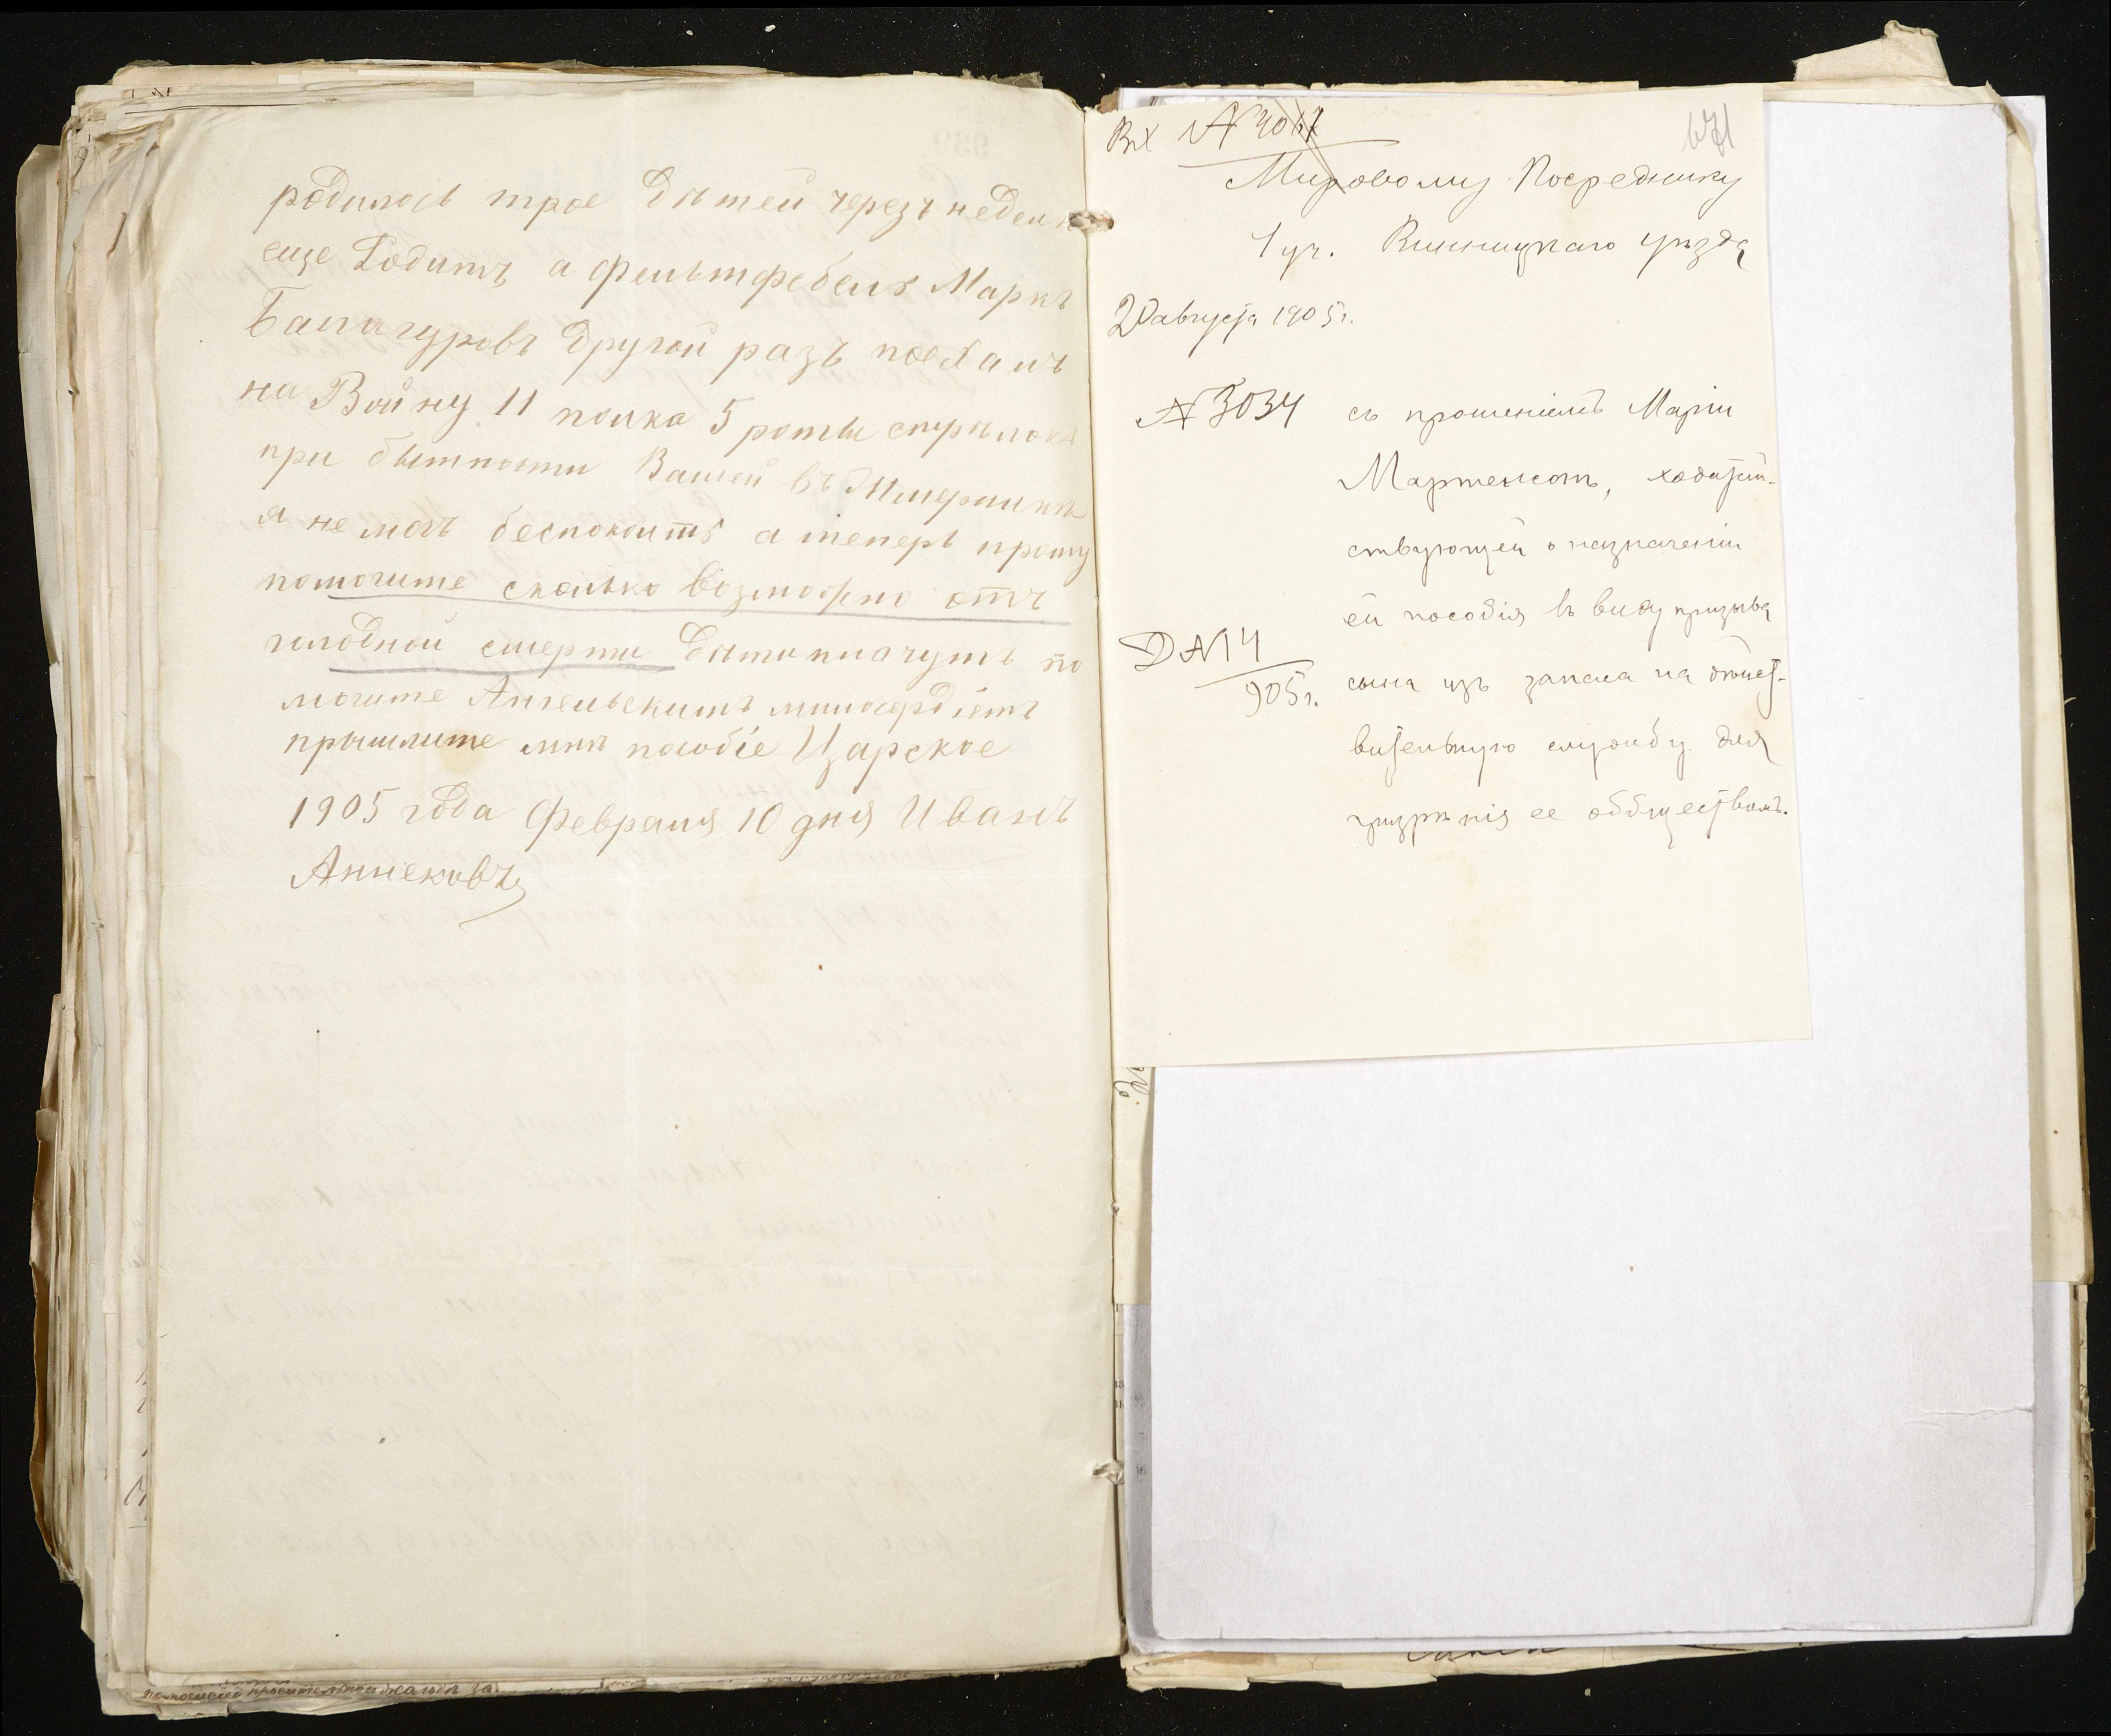 родилось трое Дѣтей черезъ недели
еще Родитъ а фельтфебель Маркъ
Балагуровъ Другой разъ поехалъ
на Войну 11 полка 5 роты стрѣлокъ
при бытности Вашей въ Жмеринкѣ
я не могъ беспокоить а теперь прошу
помогите сколько возможно отъ
голодной смерти Дѣти плачутъ по
могите Ангельскимъ милосердіемъ
прышлите мнѣ пособіе Царское
1905 года Февраля 10 дня Иванъ
Аннековъ
Вх №4067
671
Мировому Посреднику
1 уч. Винницкаго уѣзда
20 августа 1905 г.
№3034 съ прошеніемъ Маріи
Мартенсотъ, ходатай-
ствующей о назначеніи
ей пособія въ виду призыва
Д №14
905 г.
сына изъ запаса на дѣйст-
вительную службу для
призрѣнія ее обществомъ.